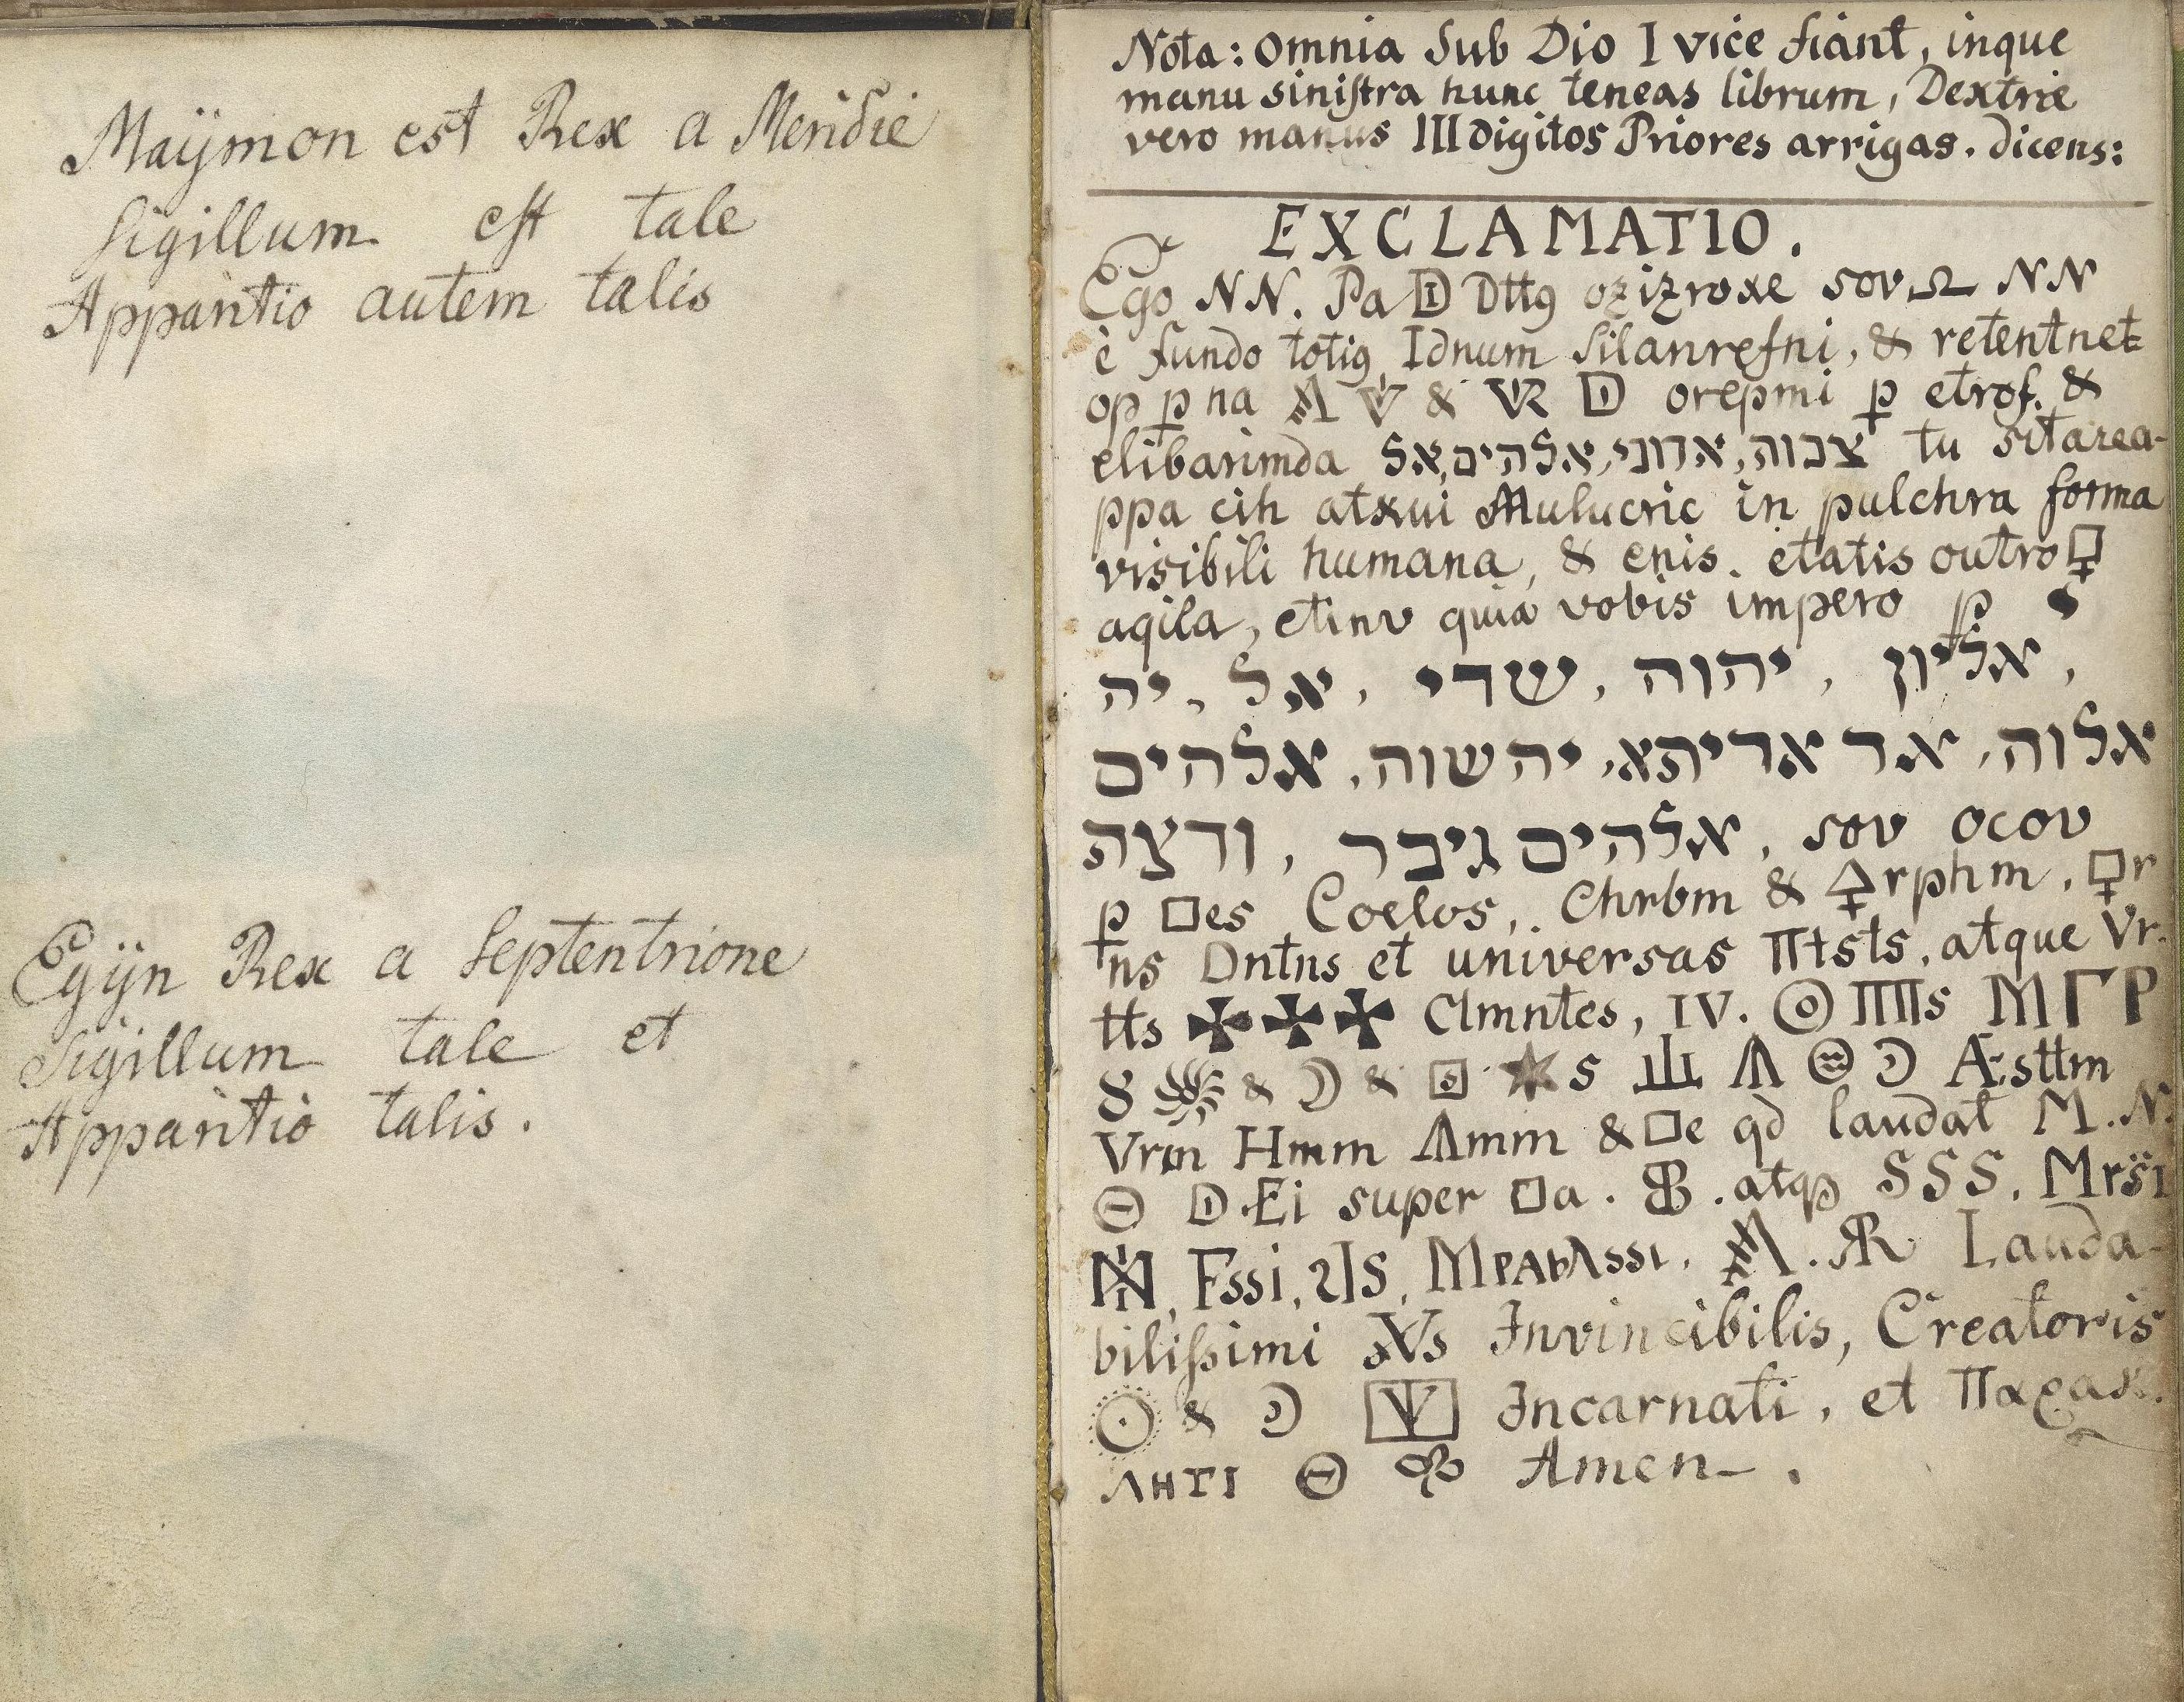 Maÿmon est Rex a Meridie
Sigillum est tale
Apparitio autem talis
Egÿn Rex a Septentrione
Sigillum tale et
Apparitio talis.
Nota: omnia Sub Dio I vice fiant, inque
manu siniſtra hunc teneas librum, Dextrie
vero manus III digitos Priores arrigas. dicens:
EXCLAMATIO.
Ego NN. Pa Dttg ozizroxe sov Ω NN
è fundo totig Idnum Silanrefni, & retentnet
op p na & orepmi p etrof. &
elibarimda אל, אלהים, אדוני, צבוה tu sitarea-
ppa cih atxui Mulucric in pulchra forma
visibili humana, & enis. etatis outro
aqila, etinv quia vobis impero p
אליון, יהוה, שדי, אל, יה
אלוה, אר אריתא, יהשוה, אלהים
ודצה, אלהים גיבר, sov ocov
p □es Coelos, Chrbm & rphm, r
ns Dntns et universas Πtsts, atque Vr.
tts ✠✠✠ Clmntes, IV. ☉ ΠΠs ΜΓΡ
& ☽ & s ☽ Æsttm
Vrm Hmm Λmm & □e qd laudat M.N.
Θ D. Ei super □a. atqp SSS, Mrsi
Fssi, Lauda-
biliſsimi Invincibilis, Creatoris
☉ & ☽ Incarnati, et
ΛΗΤΙ Θ Amen.